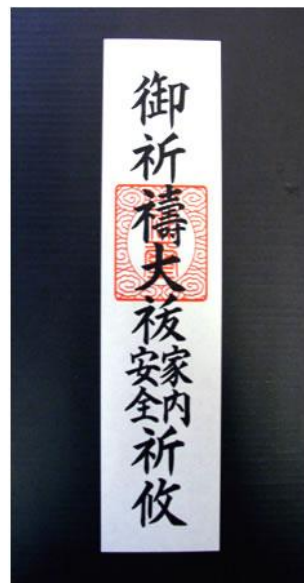 御祈禱大祓家内安全祈攸